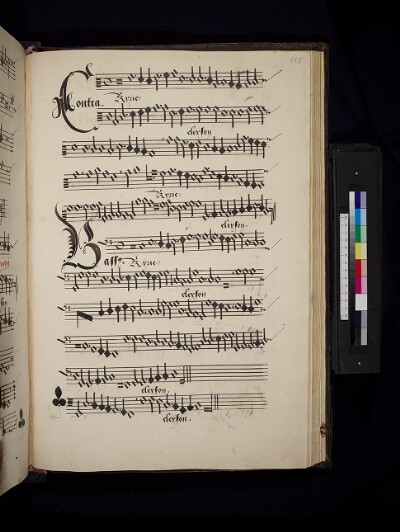 Contra. Kyrie
eleyson
Kyrie
eleyson.
Bassus. Kyrie
eleyson
eleyson
eleyson.